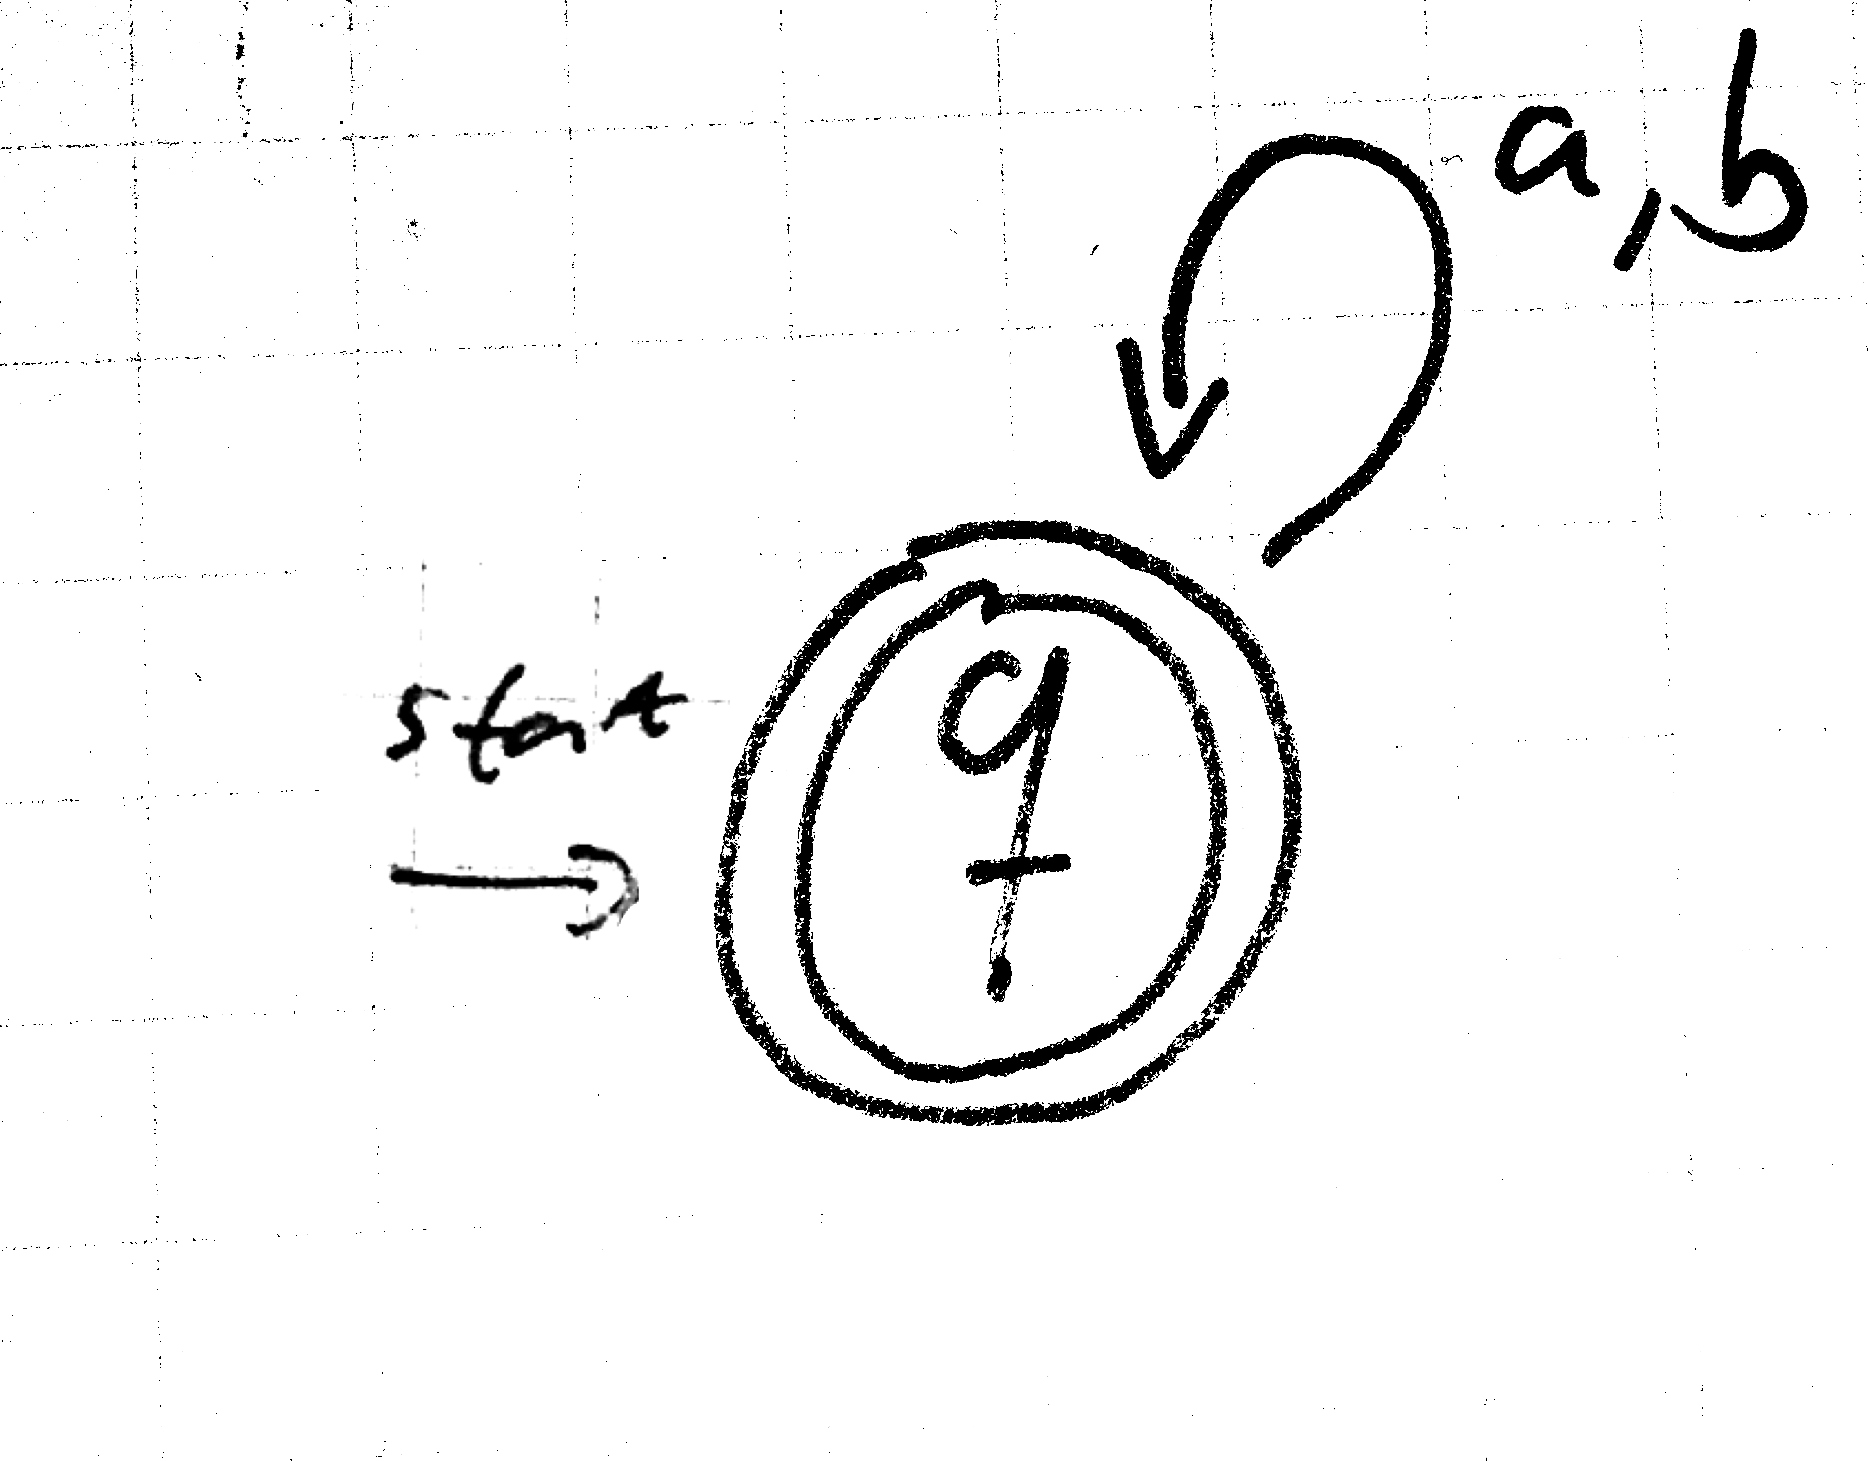 a,b
start
q